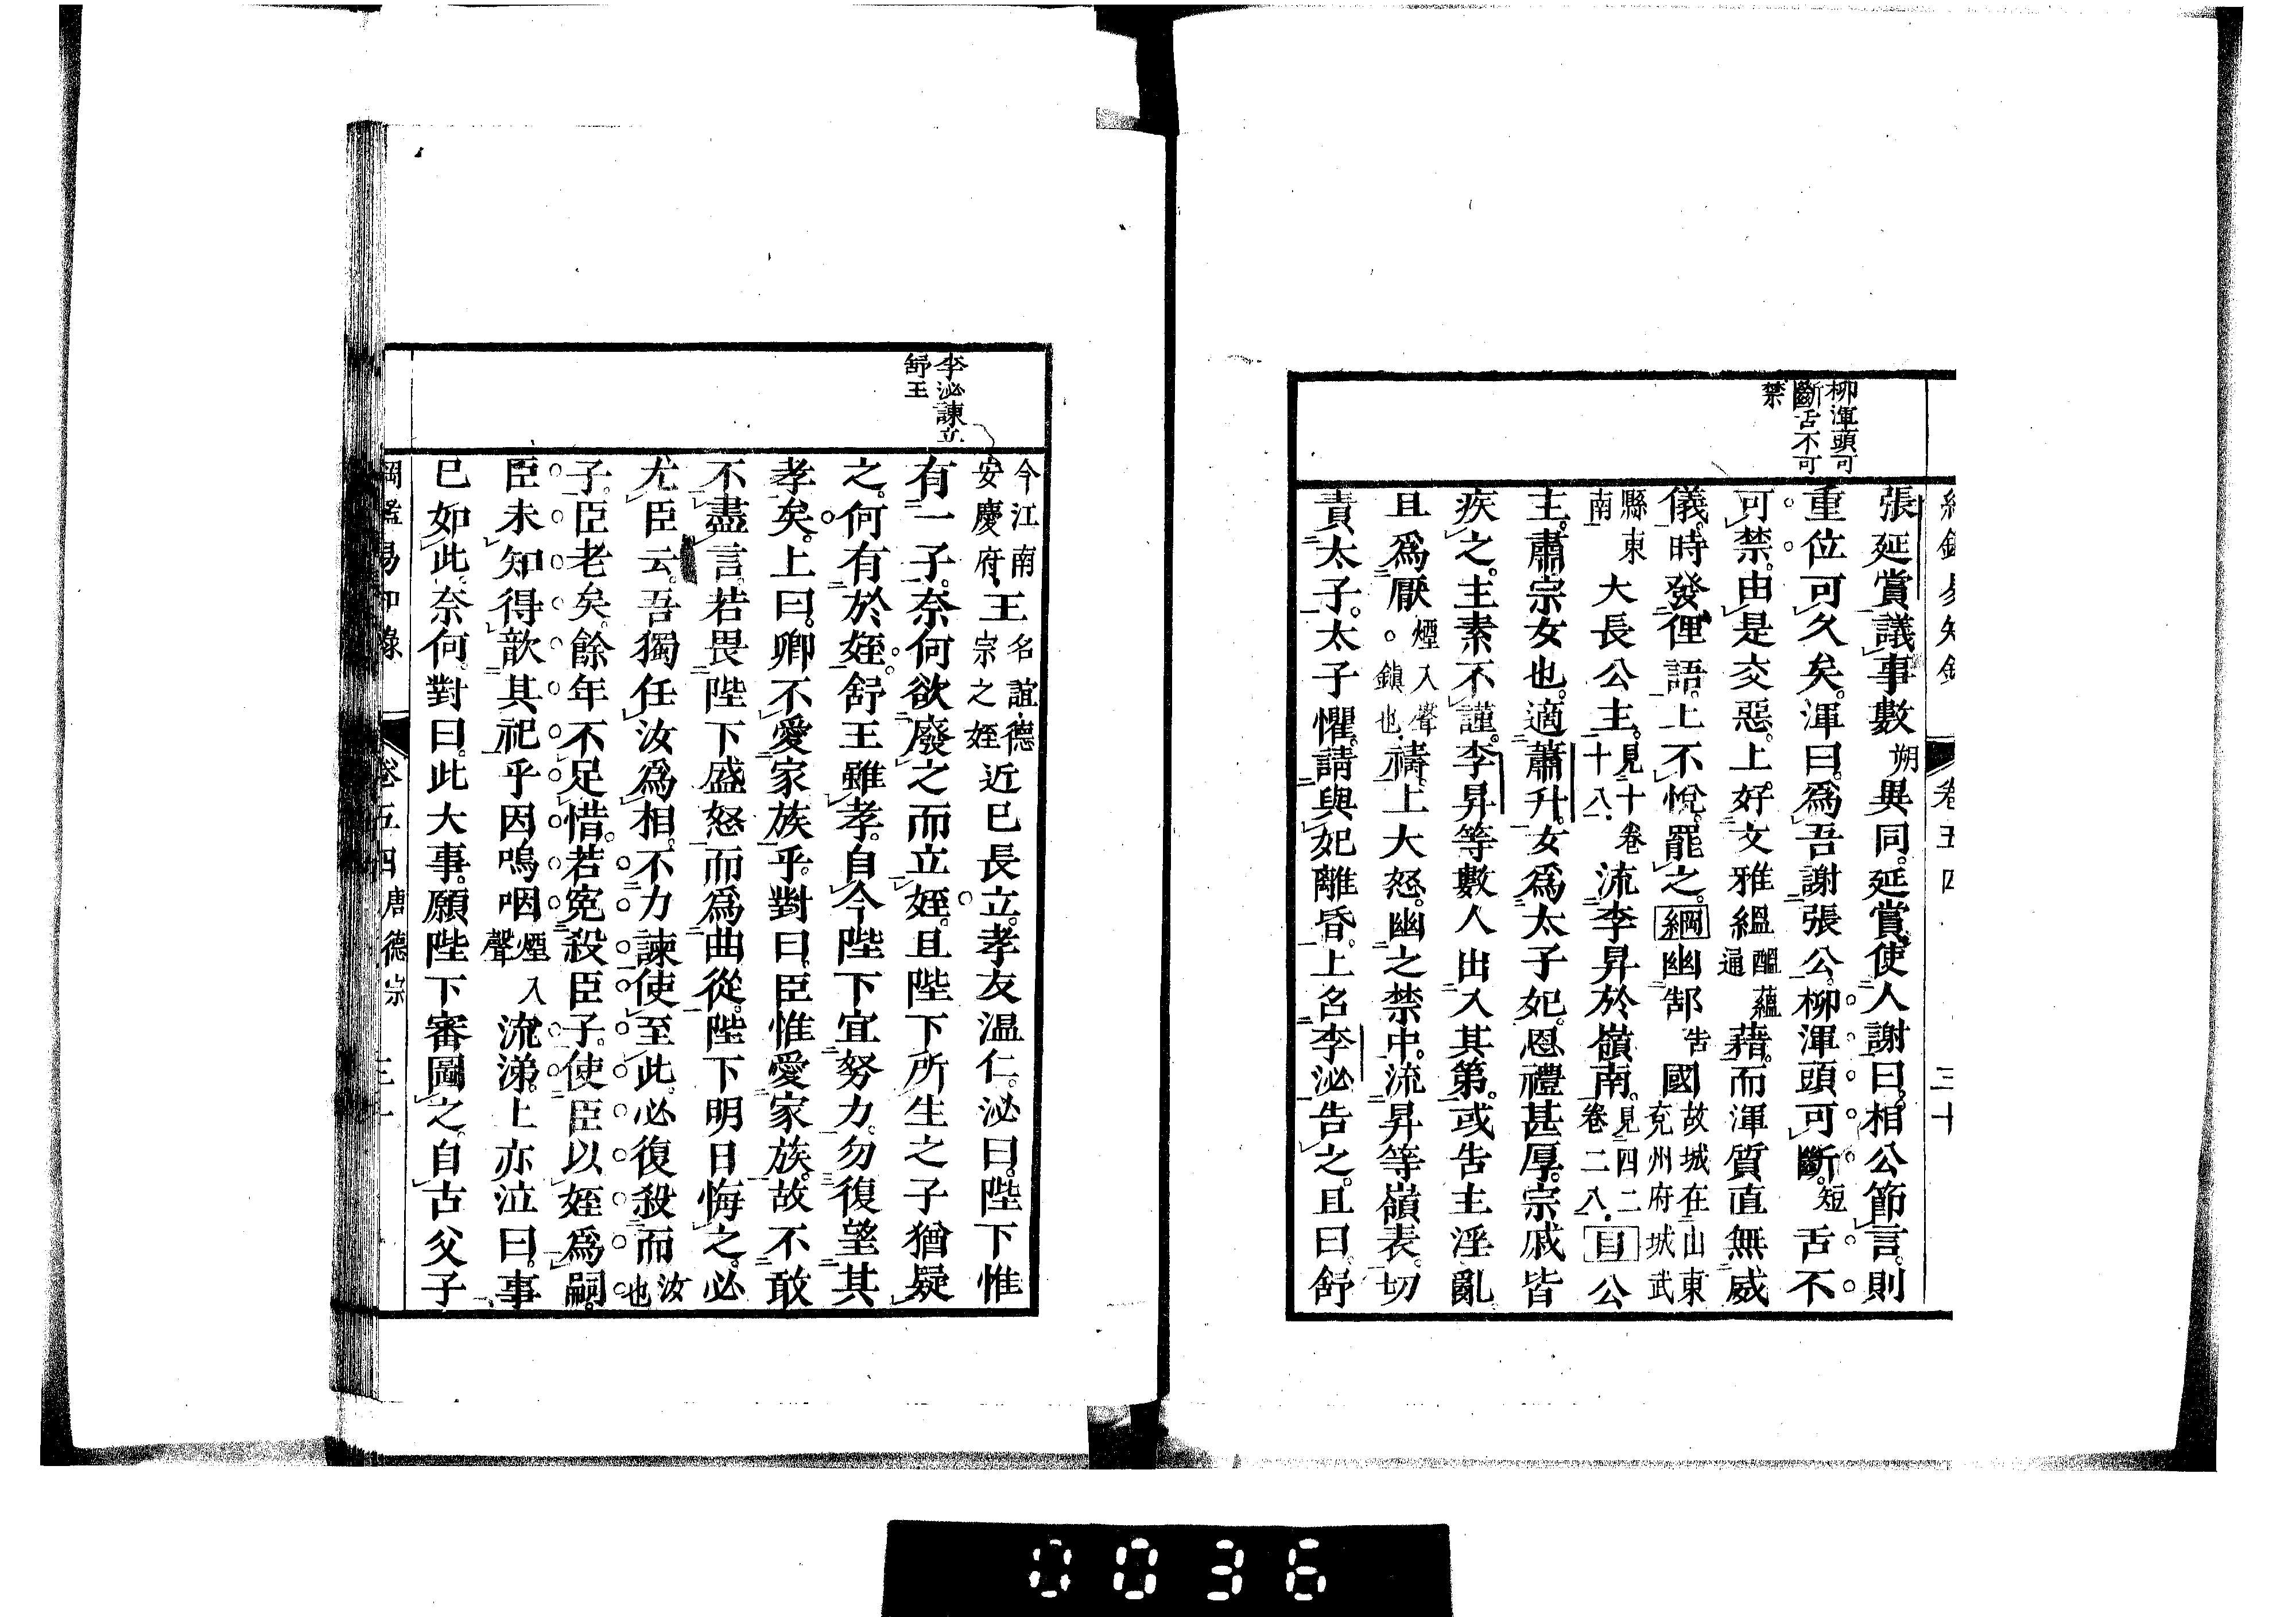 柳渾頭可
斷舌不可
禁
張延賞議事數朔異同。延賞使人謝曰。相公節言。則
重位可久矣。渾曰。爲吾謝張公。柳渾頭可斷。短舌不
可禁。由是交惡。上好文雅縕醞通蘊藉。而渾質直無威
儀。時發俚語。上不悅。罷之。綱幽郜告國故城在山東兗州府城武
縣東南大長公主。見十卷十八流李昇於嶺南。見四二卷二八目公
主。肅宗女也。適蕭升。女爲太子妃。恩禮甚厚。宗戚皆
疾之。主素不謹。李昇等數人出入其第。或告主淫亂。
且爲厭煙入聲。鎮也禱。上大怒。幽之禁中。流昇等嶺表。切
責太子。太子懼。請與妃離昏。上名李泌告之。且曰。舒
卷五四
三十
李泌諫立
舒王
今江南安慶府王名誼德宗之姪近已長立。孝友温仁。泌曰。陛下惟
有一子。奈何欲廢之而立姪。且陛下所生之子猶疑
之。何有於姪。舒王雖孝。自今陛下宜努力。勿復望其
孝矣。上曰。卿不愛家族乎。對曰。臣惟愛家族。故不敢
不盡言。若畏陛下盛怒而爲曲從。陛下明日悔之。必
尤臣云。吾獨任汝爲相。不力諫使至此。必復殺而汝也
子。臣老矣。餘年不足惜。若冤殺臣子。使臣以姪爲嗣。
臣未知得歆其祀乎因嗚咽煙入聲流涕。上亦泣曰。事
已如此。奈何。對曰。此大事。願陛下審圖之。自古父子
卷五四唐德宗
0036